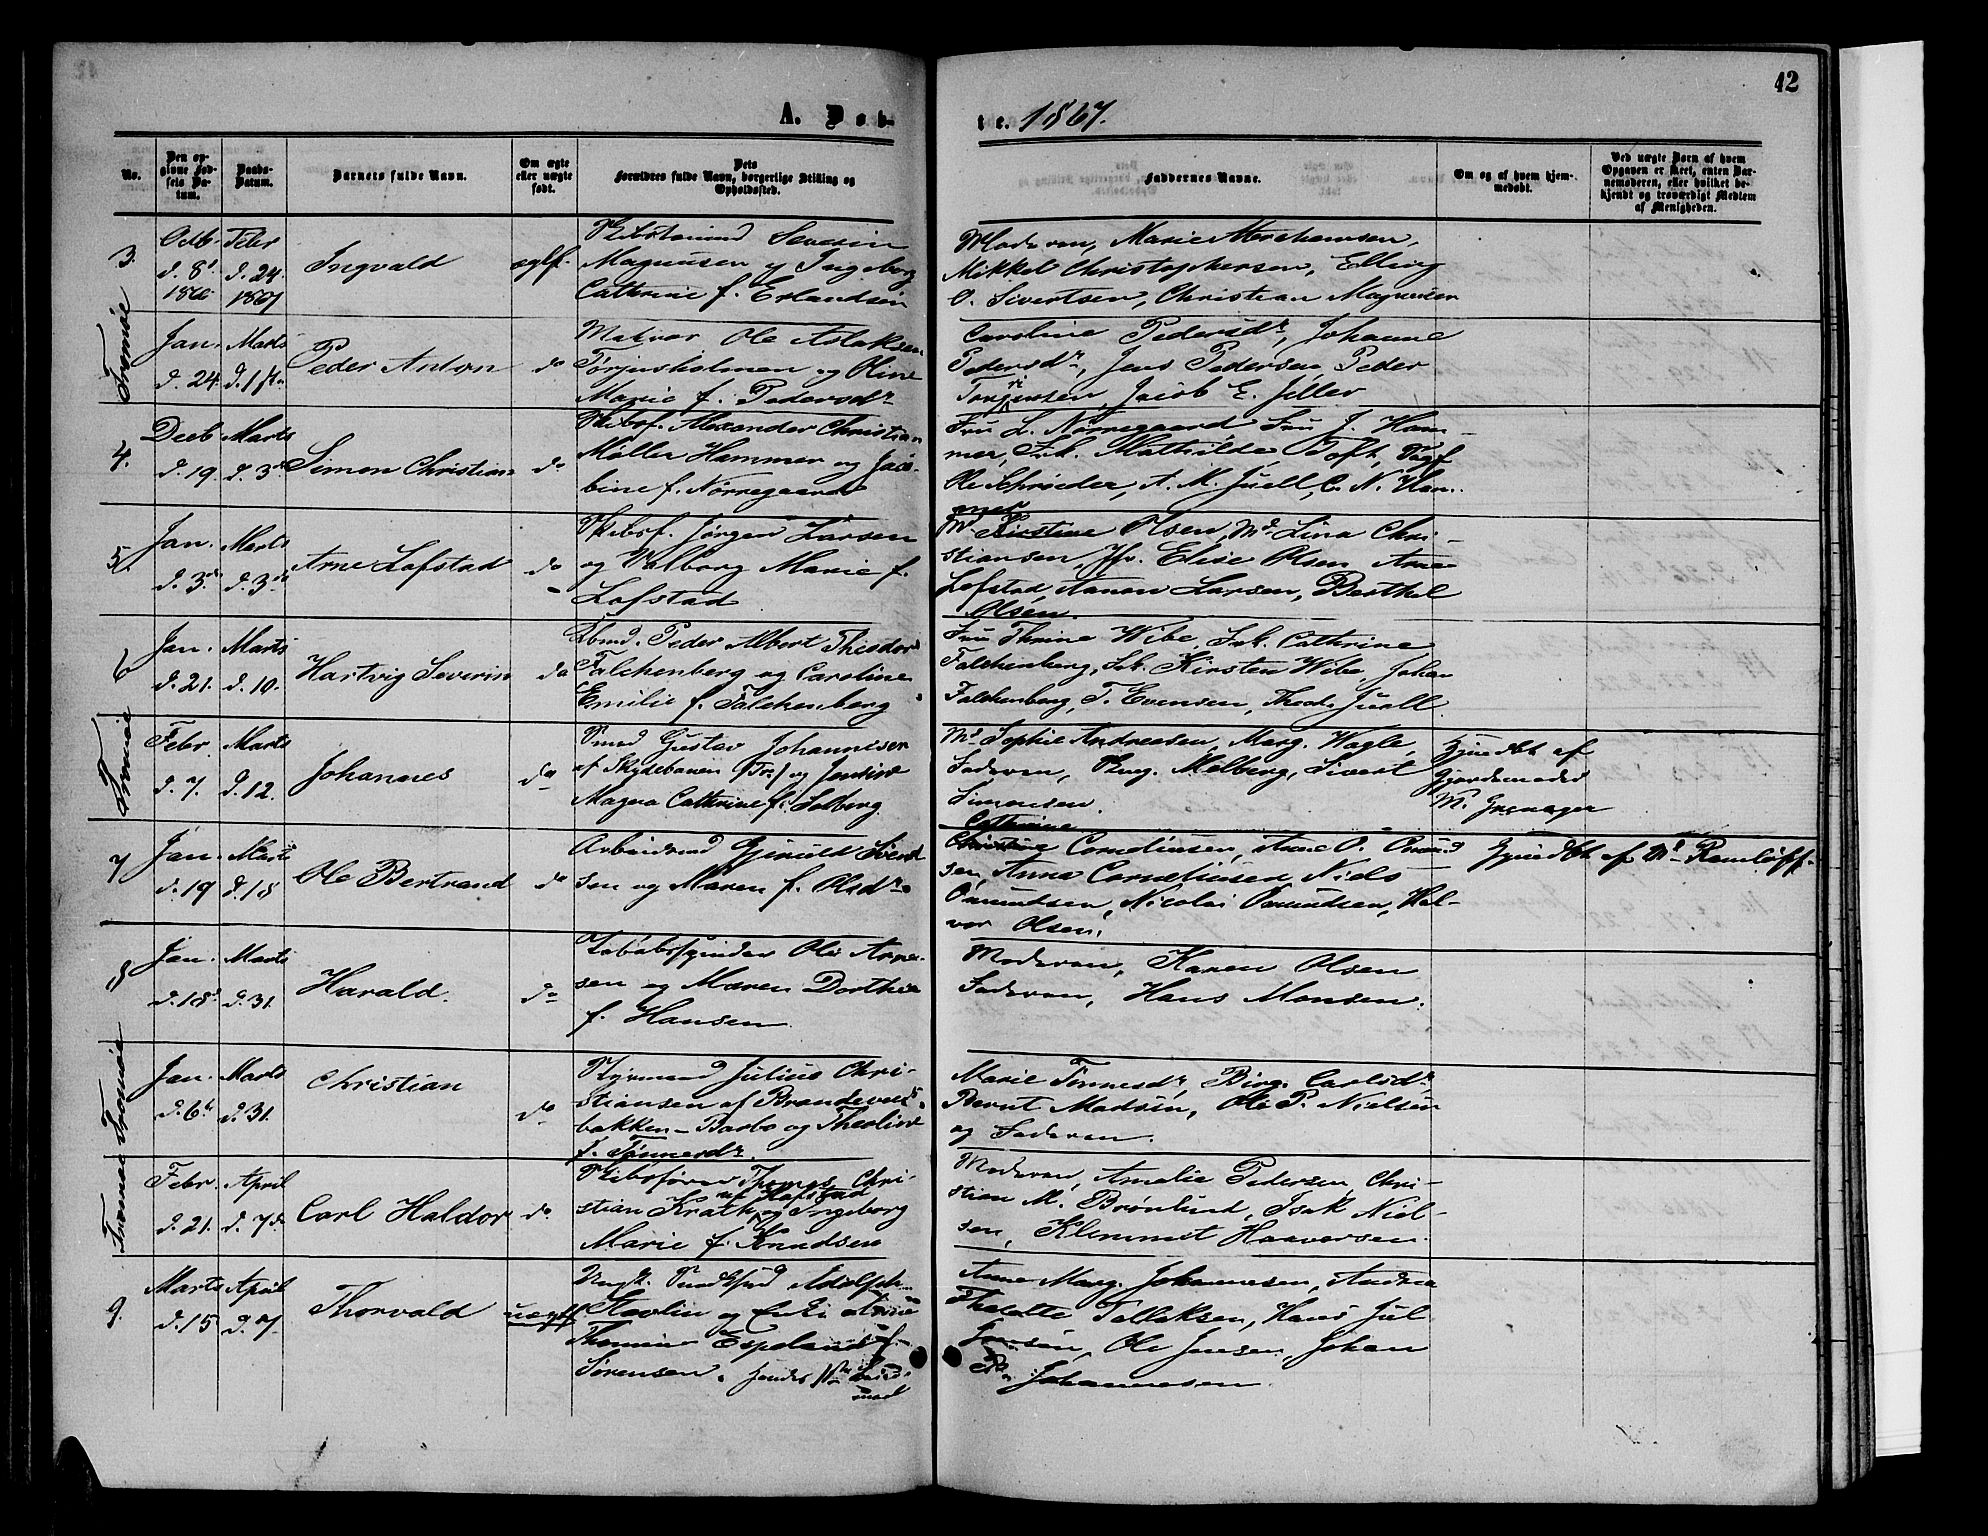 42
A. Døb-
te. 1867.
No.
Den op-
givne Fød-
sels Da-
tum.
Daabs-
Datum.
Barnets fulde Navn.
Om ægte
eller uægte
født.
Dets
Forældres fulde Navn, borgerlige Stilling og
Opholdssted.
Faddernes Navne.
Om og af hvem hjem-
medøbt.
Ved uægte Børn af hvem
Opgaven er skeet, enten Bar-
nemoderen, eller hvilket be-
kjendt og troværdigt Medlem
af Menigheden.
3.
Octb. Febr
d. 8d d. 24.
1866 1867
Ingvald
ægtef.
Severin
Magnusen og Ingeborg
Cathrine f. Erlandsen
Moderen, Marie Abrahamsen,
Mikkel Christophersen, Elling
O. Sivertsen, Christian Magnusen
Tromøe
Jan. Marts
d. 24. d. 1ste
Peder Anton
do
Matros Ole Aslaksen
Torjusholmen og Oline
Marie f. Pedersdr
Caroline Pedersdr, Johanne
Pedersdr, Jens Pedersen, Peder
Torjusen, Jacob E. Jeller
4.
Decb Marts
d. 19. d. 3de
Simon Christian
do
Skibsf. Alexander Christian
Møller Hammer og Jaco-
bine f. Nørregaard
Fru L. Nørregaard Fru J. Ham-
mer, Frk. Mathilde Toft,
Ole Schrøder, A. M. Juell, C. N. Ham-
mer
5.
Jan. Marts
d. 3de d. 3de
Arne Lofstad
do
Skibsf. Jørgen Larsen
og Valborg Marie f.
Lofstad
Md Kirstine Olsen, Md Lina Chri-
stiansen, Jfr. Elise Olsen Arne
Lofstad, Aanon Larsen, Berthel
Olsen
6
Jan. Marts
d. 21. d. 10.
Hartvig Severin
do
Peder Albert Theodor
Falchenberg og Caroline
Emilie f. Falchenberg
Fru Thrine Wibe, Frk. Cathrine
Falchenberg, Frk. Kirsten Wibe, Johan
Falchenberg, T. Evensen, Theod. Juell.
Tromøe
Febr. Marts
d. 7. d. 12.
Johannes
do
Smed Gustav Johannesen
af Skydebanen og Jensine
Magna Cathrine f. Solberg.
Md Sophie Andreasen, Marg. Wagle,
Faderen, Melberg, Sivert
Simonsen
Hjemdøbt af
Gjordemoder
M. Grenager
7
Jan. Marts
d. 19 d. 18
Ole Bertrand
do
Arbeidsmd Gjeruld Svend-
sen og Maren f. Olsdr.
Cathrine
Christine Corneliusen, Anne O. Omund-
sen, Anne Corneliusen Niels
Omundsen, Nicolai Omundsen, Hal-
vor Olsen.
Hjemdøbt af Md Ramløff.
8
Jan. Marts
d. 18d d. 31.
Harald.
do
Tobaksspinder Ole Arne-
sen og Maren Dorthea
f. Hansen
Moderen, Karen Olsen
Faderen, Hans Monsen.
Tromøe
Jan. Marts
d. 6te d. 31.
Christian
do
Styrmand Julius Chri-
stiansen af
bakken - Barbo og Theoline
f. Tønnesdr.
Marie Tønnesdr, Birg. Carlsdr
Bernt Madsen, Ole P. Nielsen
og Faderen.
Tromøe
Febr. April
d. 21. d. 7de
Carl Haldor
do
Skibsfører Thomas Chri-
af Hofstad
stian Krath og Ingeborg
Marie f. Knudsen
Moderen, Amalie Pedersen, Chri-
stian M. Brønlund, Isak Niel-
sen, Klemmet Haaversen.
9.
Marts April
d. 15 d. 7
Thorvald
uægtf.
Ungk. Adolph
og Enke Anne
Thomine Espeland f.
Sørensen.
Anne Marg. Johannesen, Andrea
Tellefsen, Hans Jul.
Jensen, Ole Jensen, Johan
Johannesen.